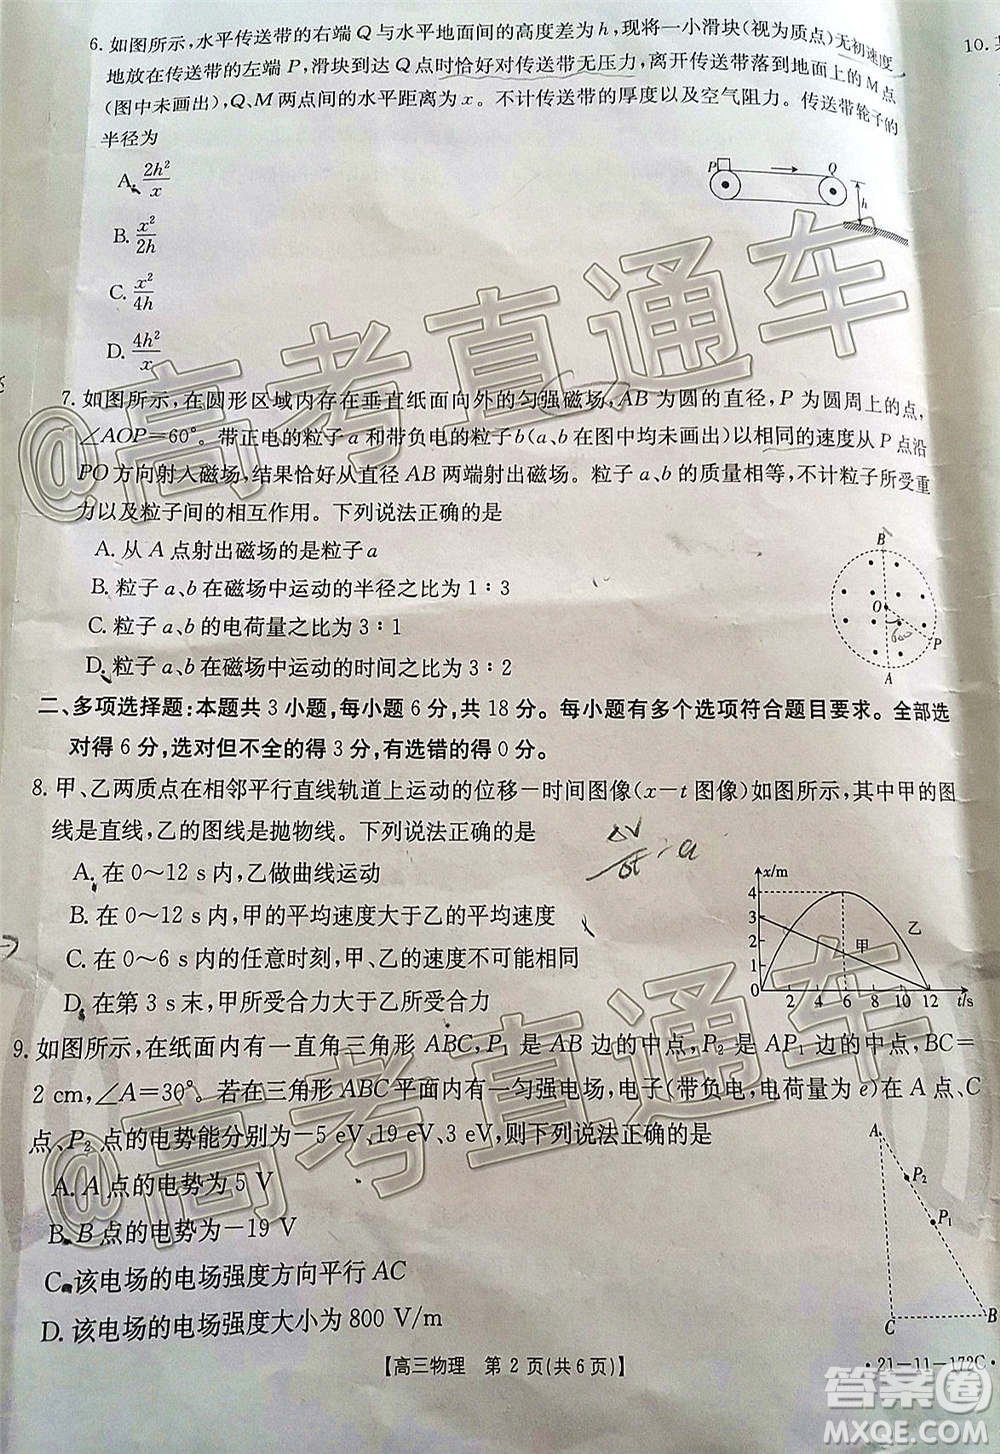 6. 如图所示,水平传送带的右端 Q 与水平地面间的高度差为 h,现将一小滑块(视为质点)无初速度
地放在传送带的左端 P,滑块到达 Q 点时恰好对传送带无压力,离开传送带落到地面上的 M 点
(图中未画出),Q、M 两点间的水平距离为 x。不计传送带的厚度以及空气阻力。传送带轮子的
半径为
A. 2h²/x
B. x²/2h
C. x²/4h
D. 4h²/x
P
Q
h
10.
7. 如图所示,在圆形区域内存在垂直纸面向外的匀强磁场,AB 为圆的直径,P 为圆周上的点,
∠AOP=60°。带正电的粒子 a 和带负电的粒子 b(a、b 在图中均未画出)以相同的速度从 P 点沿
PO 方向射入磁场,结果恰好从直径 AB 两端射出磁场。粒子 a、b 的质量相等,不计粒子所受重
力以及粒子间的相互作用。下列说法正确的是
A. 从 A 点射出磁场的是粒子 a
B. 粒子 a、b 在磁场中运动的半径之比为 1∶3
C. 粒子 a、b 的电荷量之比为 3∶1
D. 粒子 a、b 在磁场中运动的时间之比为 3∶2
B
O
60°
P
A
二、多项选择题:本题共 3 小题,每小题 6 分,共 18 分。每小题有多个选项符合题目要求。全部选
对得 6 分,选对但不全的得 3 分,有选错的得 0 分。
8. 甲、乙两质点在相邻平行直线轨道上运动的位移-时间图像(x-t 图像)如图所示,其中甲的图
线是直线,乙的图线是抛物线。下列说法正确的是
A. 在 0~12 s 内,乙做曲线运动
B. 在 0~12 s 内,甲的平均速度大于乙的平均速度
C. 在 0~6 s 内的任意时刻,甲、乙的速度不可能相同
D. 在第 3 s 末,甲所受合力大于乙所受合力
x/m
4
3
2
1
0
2 4 6 8 10 12 t/s
甲
乙
9. 如图所示,在纸面内有一直角三角形 ABC,P₁ 是 AB 边的中点,P₂ 是 AP₁ 边的中点,BC=
2 cm,∠A=30°。若在三角形 ABC 平面内有一匀强电场,电子(带负电,电荷量为 e)在 A 点、C
点、P₂ 点的电势能分别为-5 eV、19 eV、3 eV,则下列说法正确的是
A. A 点的电势为 5 V
B. B 点的电势为-19 V
C. 该电场的电场强度方向平行 AC
D. 该电场的电场强度大小为 800 V/m
A
P₂
P₁
C
B
【高三物理 第 2 页(共 6 页)】
·21-11-172C·
@高考直通车
@高考直通车
答案圈
MXQE.COM